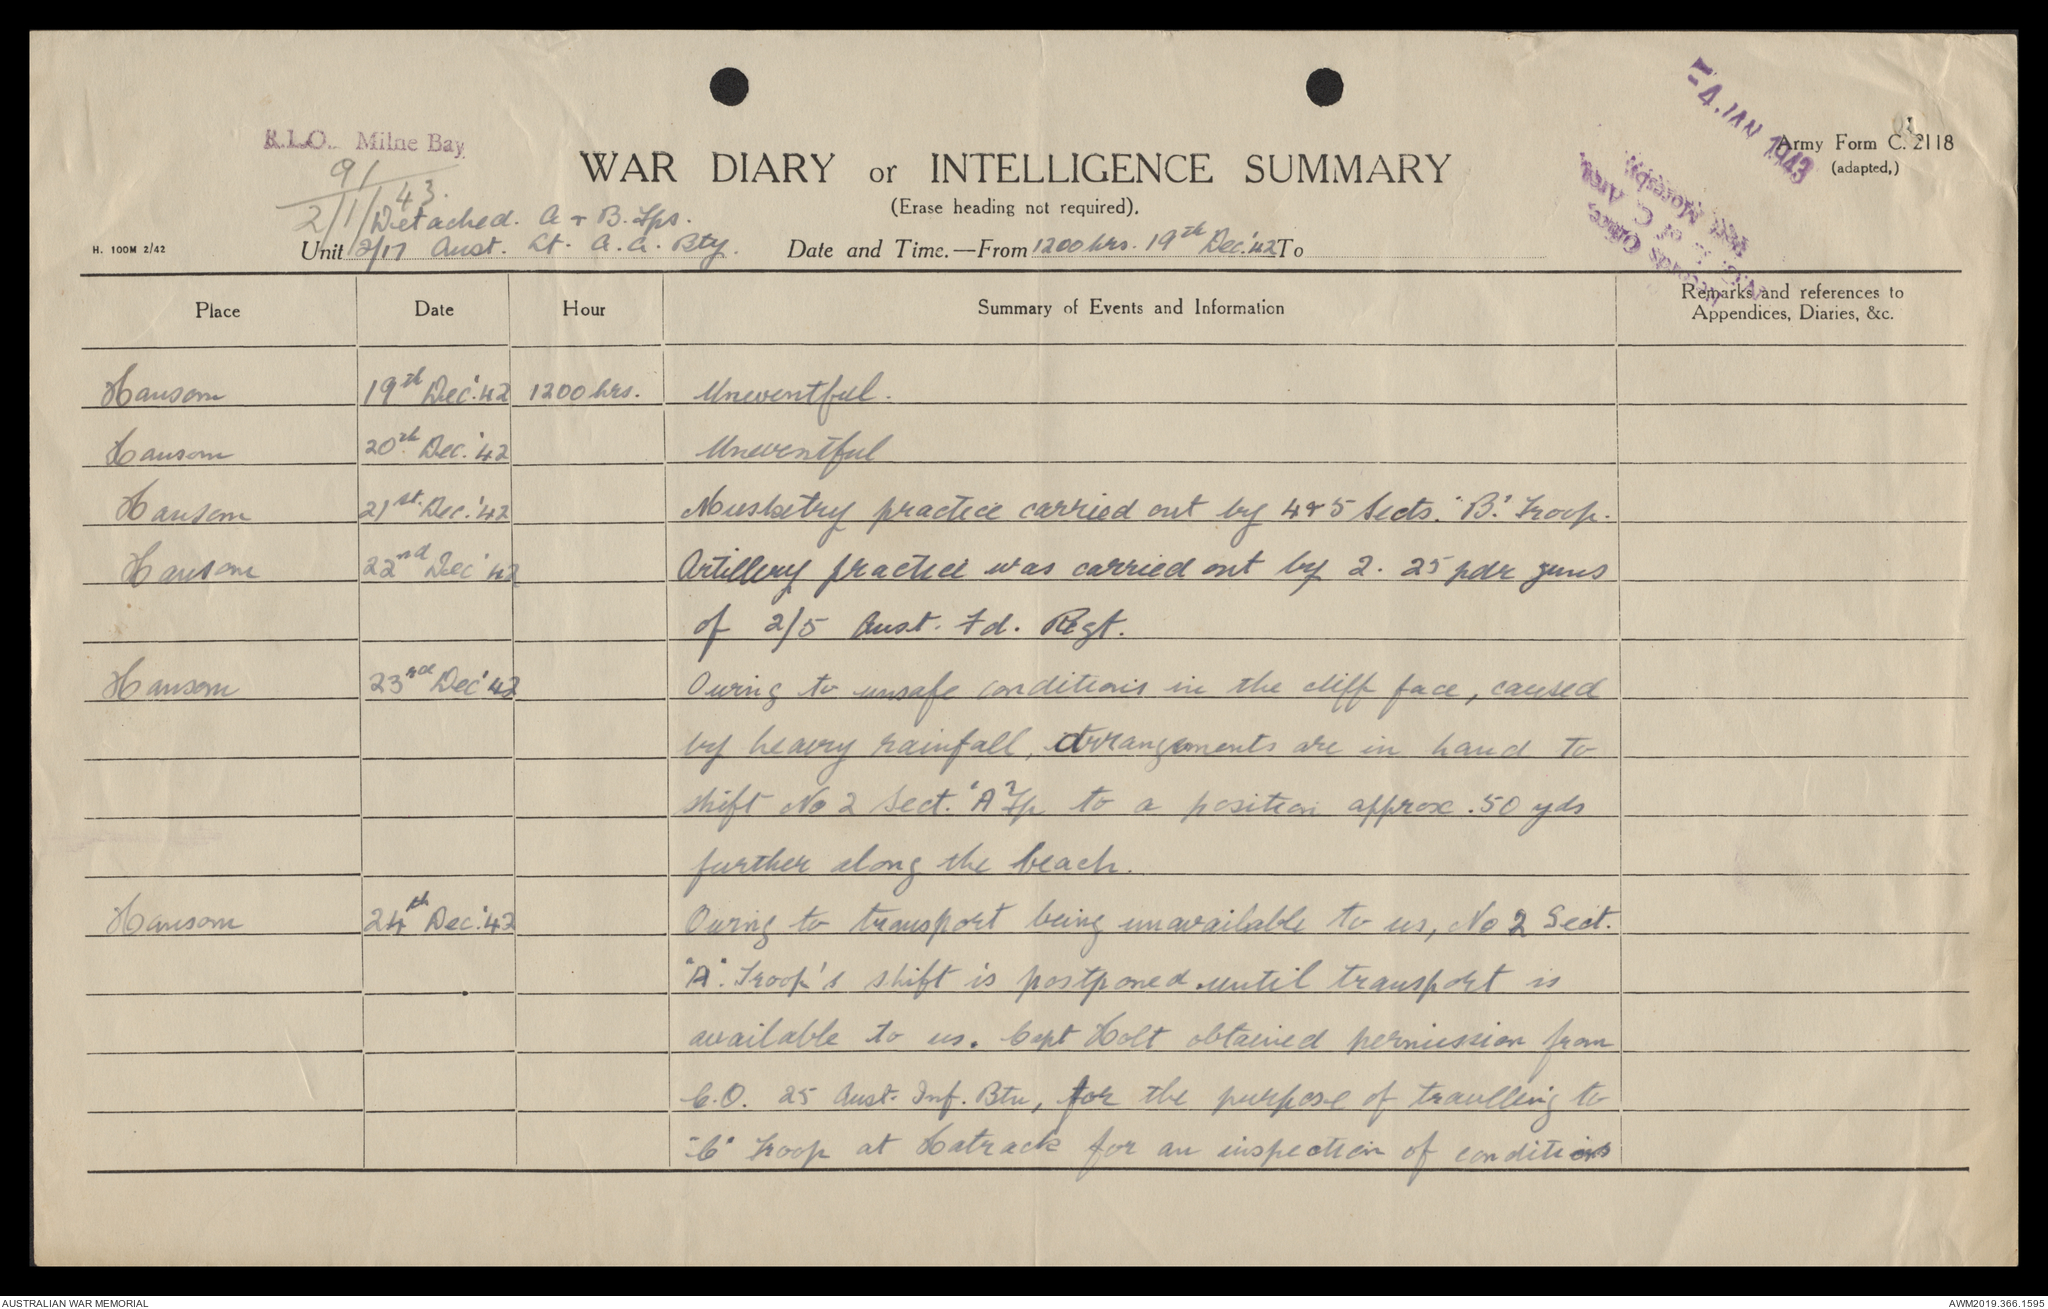 R.L.O. Milne Bay
91
2/1/43.
- 4 JAN 1943
Records Office,
N.G. L. of C. Area
Port Moresby
Army Form C. 2118
(adapted,)
WAR DIARY or INTELLIGENCE SUMMARY
(Erase heading not required).
H. 100M 2/42
Detached. A & B. Tps.
Unit 2/17 Aust. Lt. A.A. Bty. Date and Time.—From 1200 hrs. 19th Dec.'42 To
Place Date Hour Summary of Events and Information Remarks and references to Appendices, Diaries, &c.
Hansom 19th Dec.'42 1200 hrs. Uneventful.
Hansom 20th Dec.'42 Uneventful
Hansom 21st. Dec.'42 Musketry practice carried out by 4 & 5 Sects. "B." Troop.
Hansom 22nd Dec'42 Artillery practice was carried out by 2. 25 pdr guns
of 2/5 Aust. Fd. Regt.
Hansom 23rd Dec'42 Owing to unsafe conditions in the cliff face, caused
by heavy rainfall, arrangements are in hand to
shift No 2 Sect. "A" Tp to a position approx. 50 yds
further along the beach.
Hansom 24th Dec.'42 Owing to transport being unavailable to us, No 2 Sect.
"A". Troop's shift is postponed until transport is
available to us. Capt Holt obtained permission from
C.O. 25 Aust. Inf. Btn, for the purpose of travelling to
"C" Troop at Hatrack for an inspection of conditions
AUSTRALIAN WAR MEMORIAL
AWM2019.366.1595